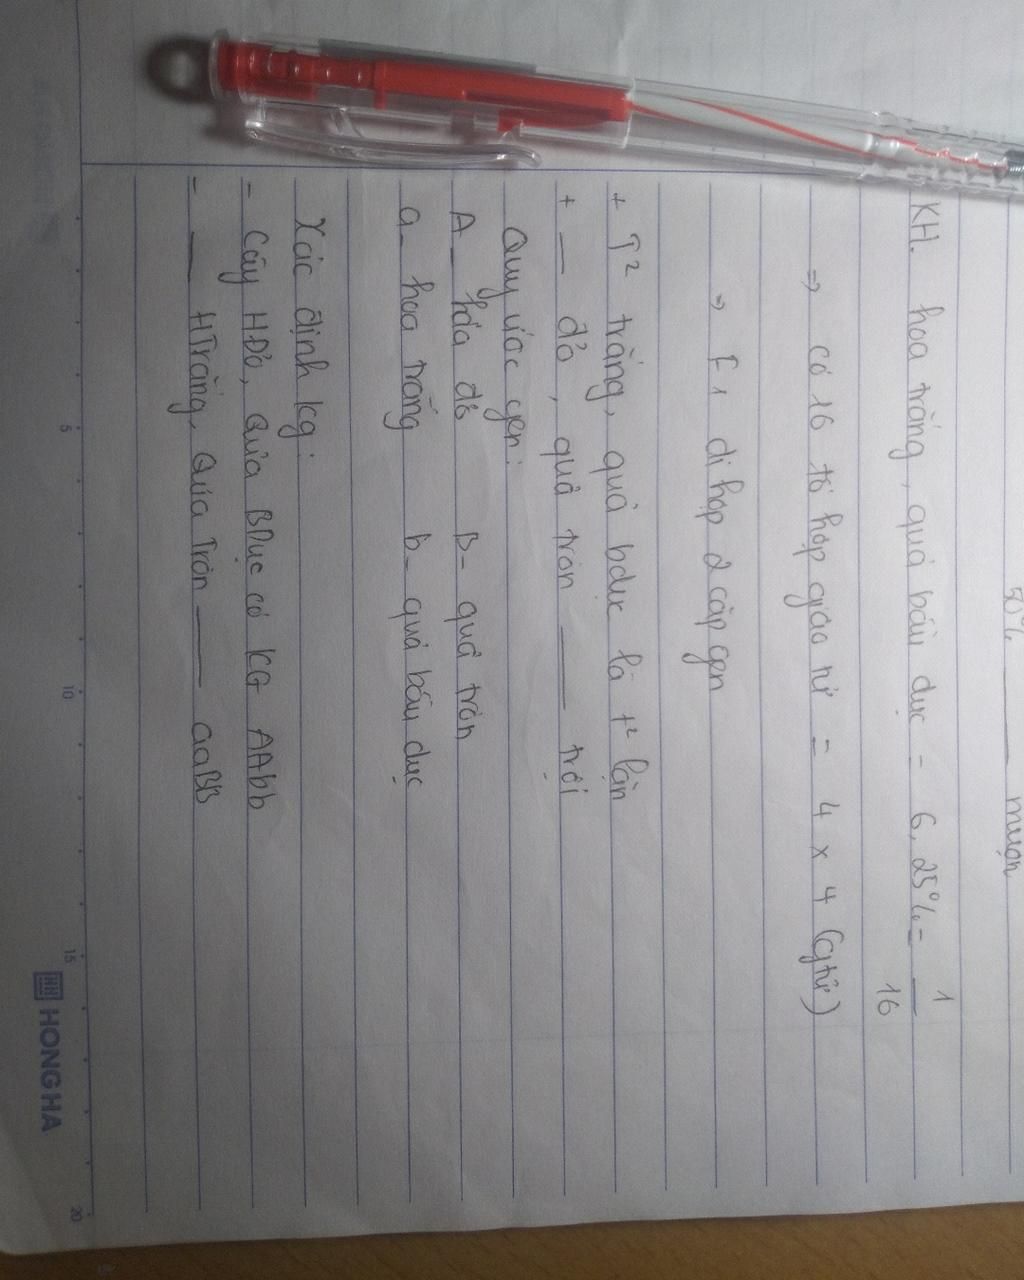 50% ___ muộn
KH. hoa trắng, quả bầu dục = 6,25% = 1/16
=> có 16 tổ hợp giao tử = 4 x 4 (gtử)
=> F1 dị hợp 2 cặp gen
+ T² trắng, quả bdục là t² lặn
+ __ đỏ, quả tròn ___ trội
Quy ước gen:
A_ hóa đỏ B- quả tròn
a_ hoa trắng b_ quả bầu dục
Xác định kg:
- Cây HĐỏ, Qủa BDục có KG AAbb
- __ HTrắng, Qủa Tròn ___ aaBB
5 10 15 20
HONG HA